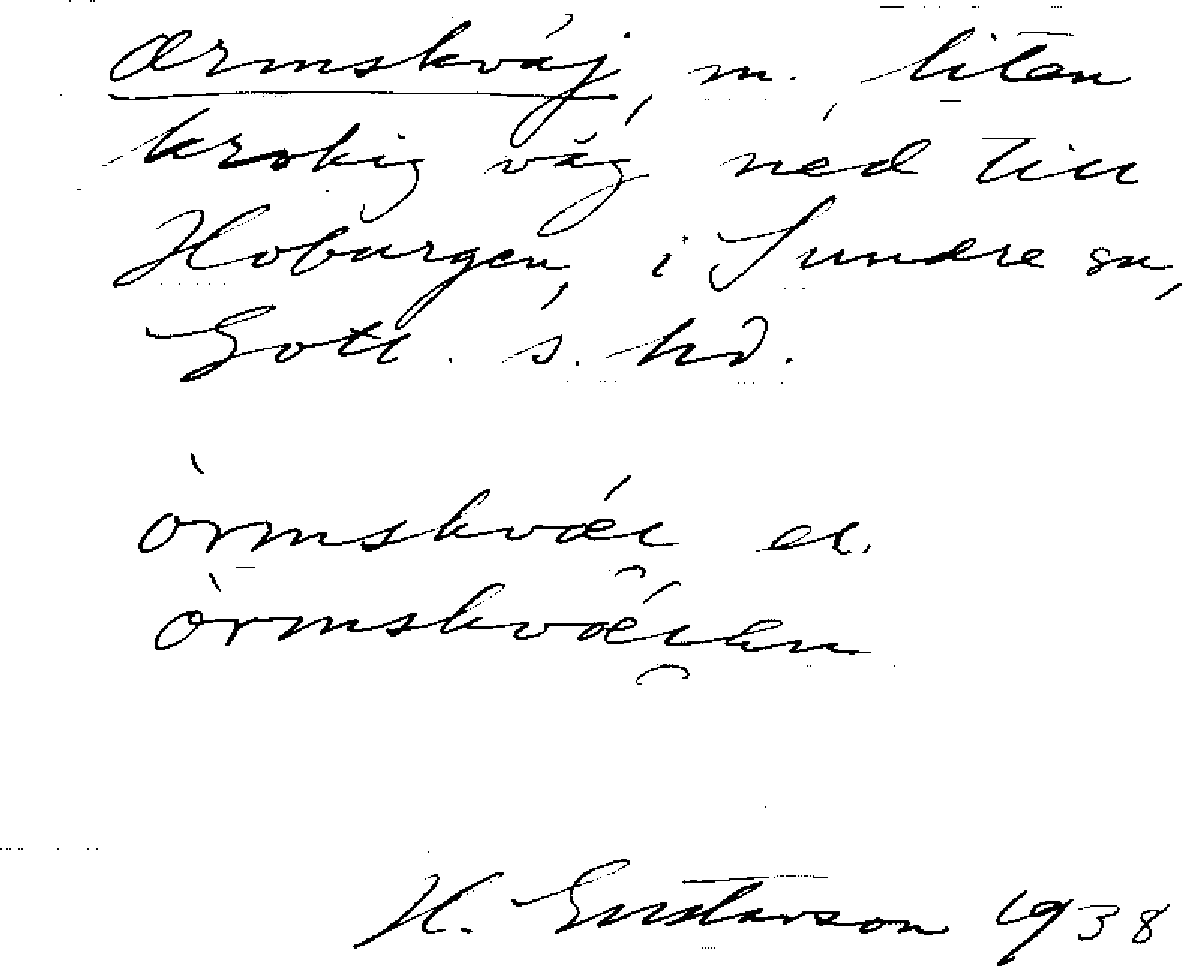 Ormskváj, m., liten
krokig väg ned till
Hoburgen, i Sundre sn,
Gotl. s. hd.
òrmskvǽi el.
òrmskvǽi̯en
H. Gustavson 1938